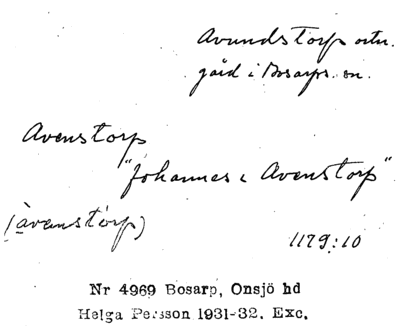 Avundstorp ortn.
gård i Bosarps sn.
Avenstorp
"Johannes i Avenstorp"
(àvenstòrp)
1179:10
Nr 4969 Bosarp, Onsjö hd
Helga Persson 1931-32. Exc.